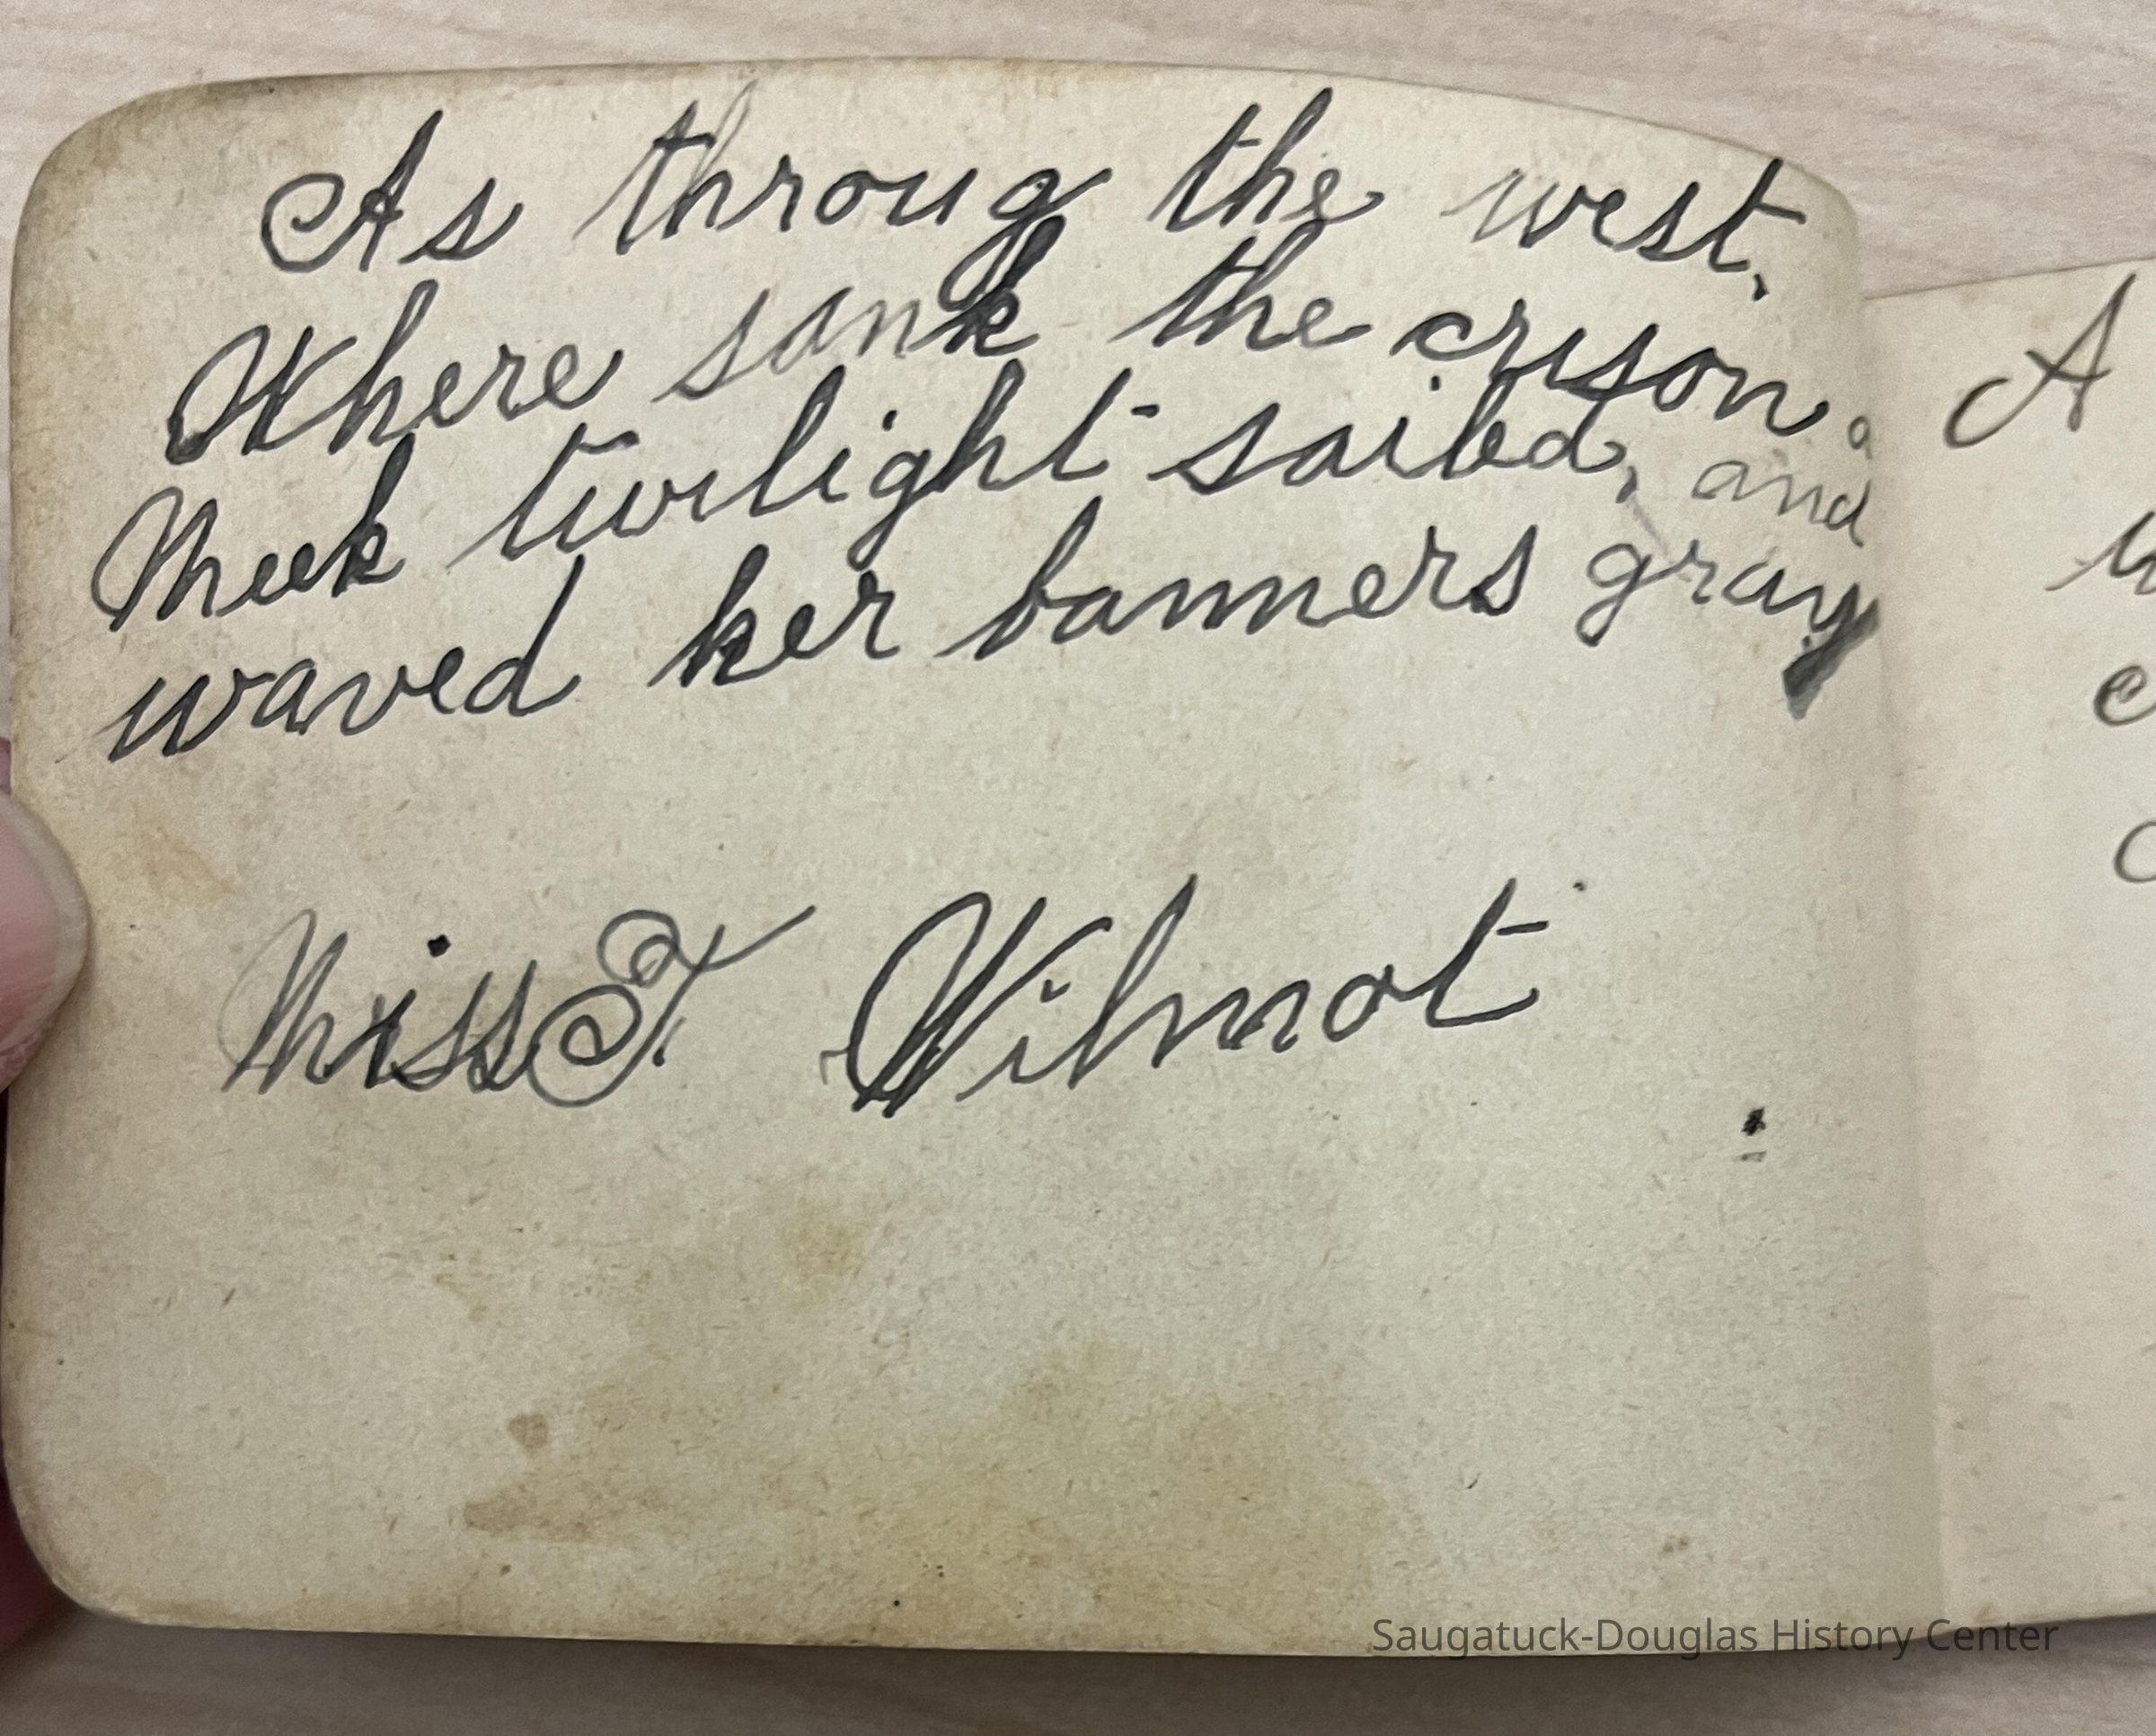 As throug the west,
Where sank the crison
Meek twilight sailed, and
waved her banners gray
Miss T. Wilmot
A
Saugatuck-Douglas History Center